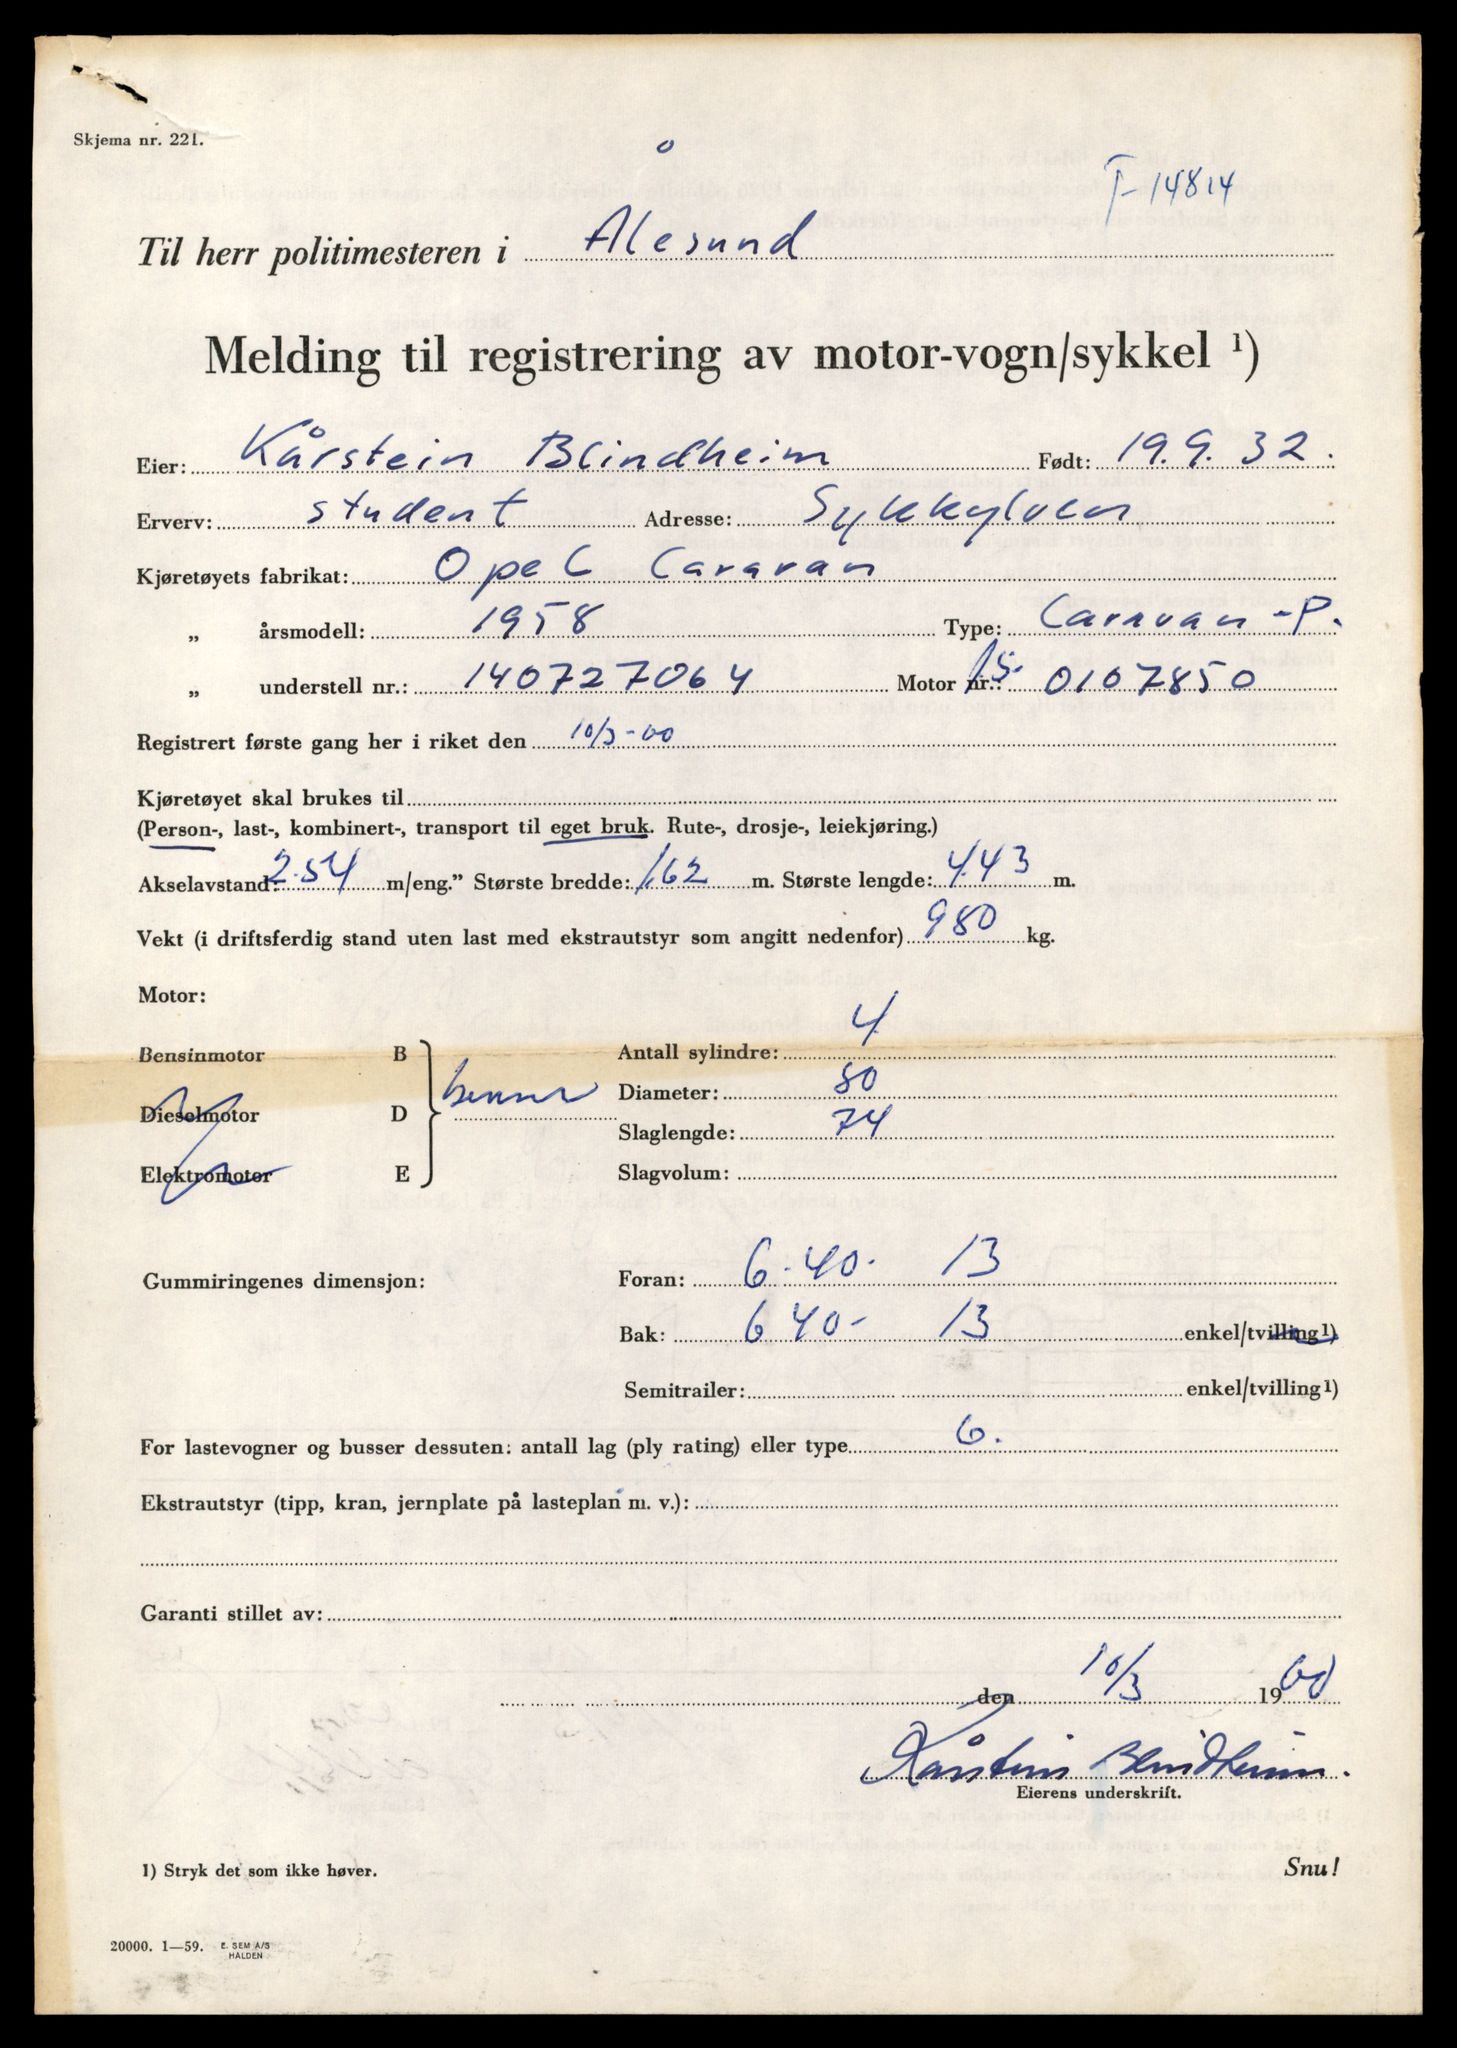 Skjema nr. 221.
T-14814
Til herr politimesteren i Ålesund
Melding til registrering av motor-vogn/sykkel 1)
Eier: Kårstein Blindheim Født: 19.9.32.
Erverv: student Adresse: Sykkylven
Kjøretøyets fabrikat: Opel Caravan
„ årsmodell: 1958 Type: Caravan-P.
„ understell nr.: 140727064 Motor nr.: 15- 0107850
Registrert første gang her i riket den 10/3-60
Kjøretøyet skal brukes til
(Person-, last-, kombinert-, transport til eget bruk. Rute-, drosje-, leiekjøring.)
Akselavstand: 2.54 m/eng.” Største bredde: 1.62 m. Største lengde: 4.43 m.
Vekt (i driftsferdig stand uten last med ekstrautstyr som angitt nedenfor) 980 kg.
Motor:
Bensinmotor B Antall sylindre: 4
Diameter: 80
Dieselmotor D Slaglengde: 74
Elektromotor E Slagvolum:
Gummiringenes dimensjon: Foran: 6.40- 13
Bak: 640- 13 enkel/tvilling1)
Semitrailer: enkel/tvilling1)
For lastevogner og busser dessuten: antall lag (ply rating) eller type 6.
Ekstrautstyr (tipp, kran, jernplate på lasteplan m. v.):
Garanti stillet av:
den 10/3 1960
Kårstein Blindheim.
Eierens underskrift.
1) Stryk det som ikke høver.
Snu!
20000. 1—59. E. SEM A/S
HALDEN